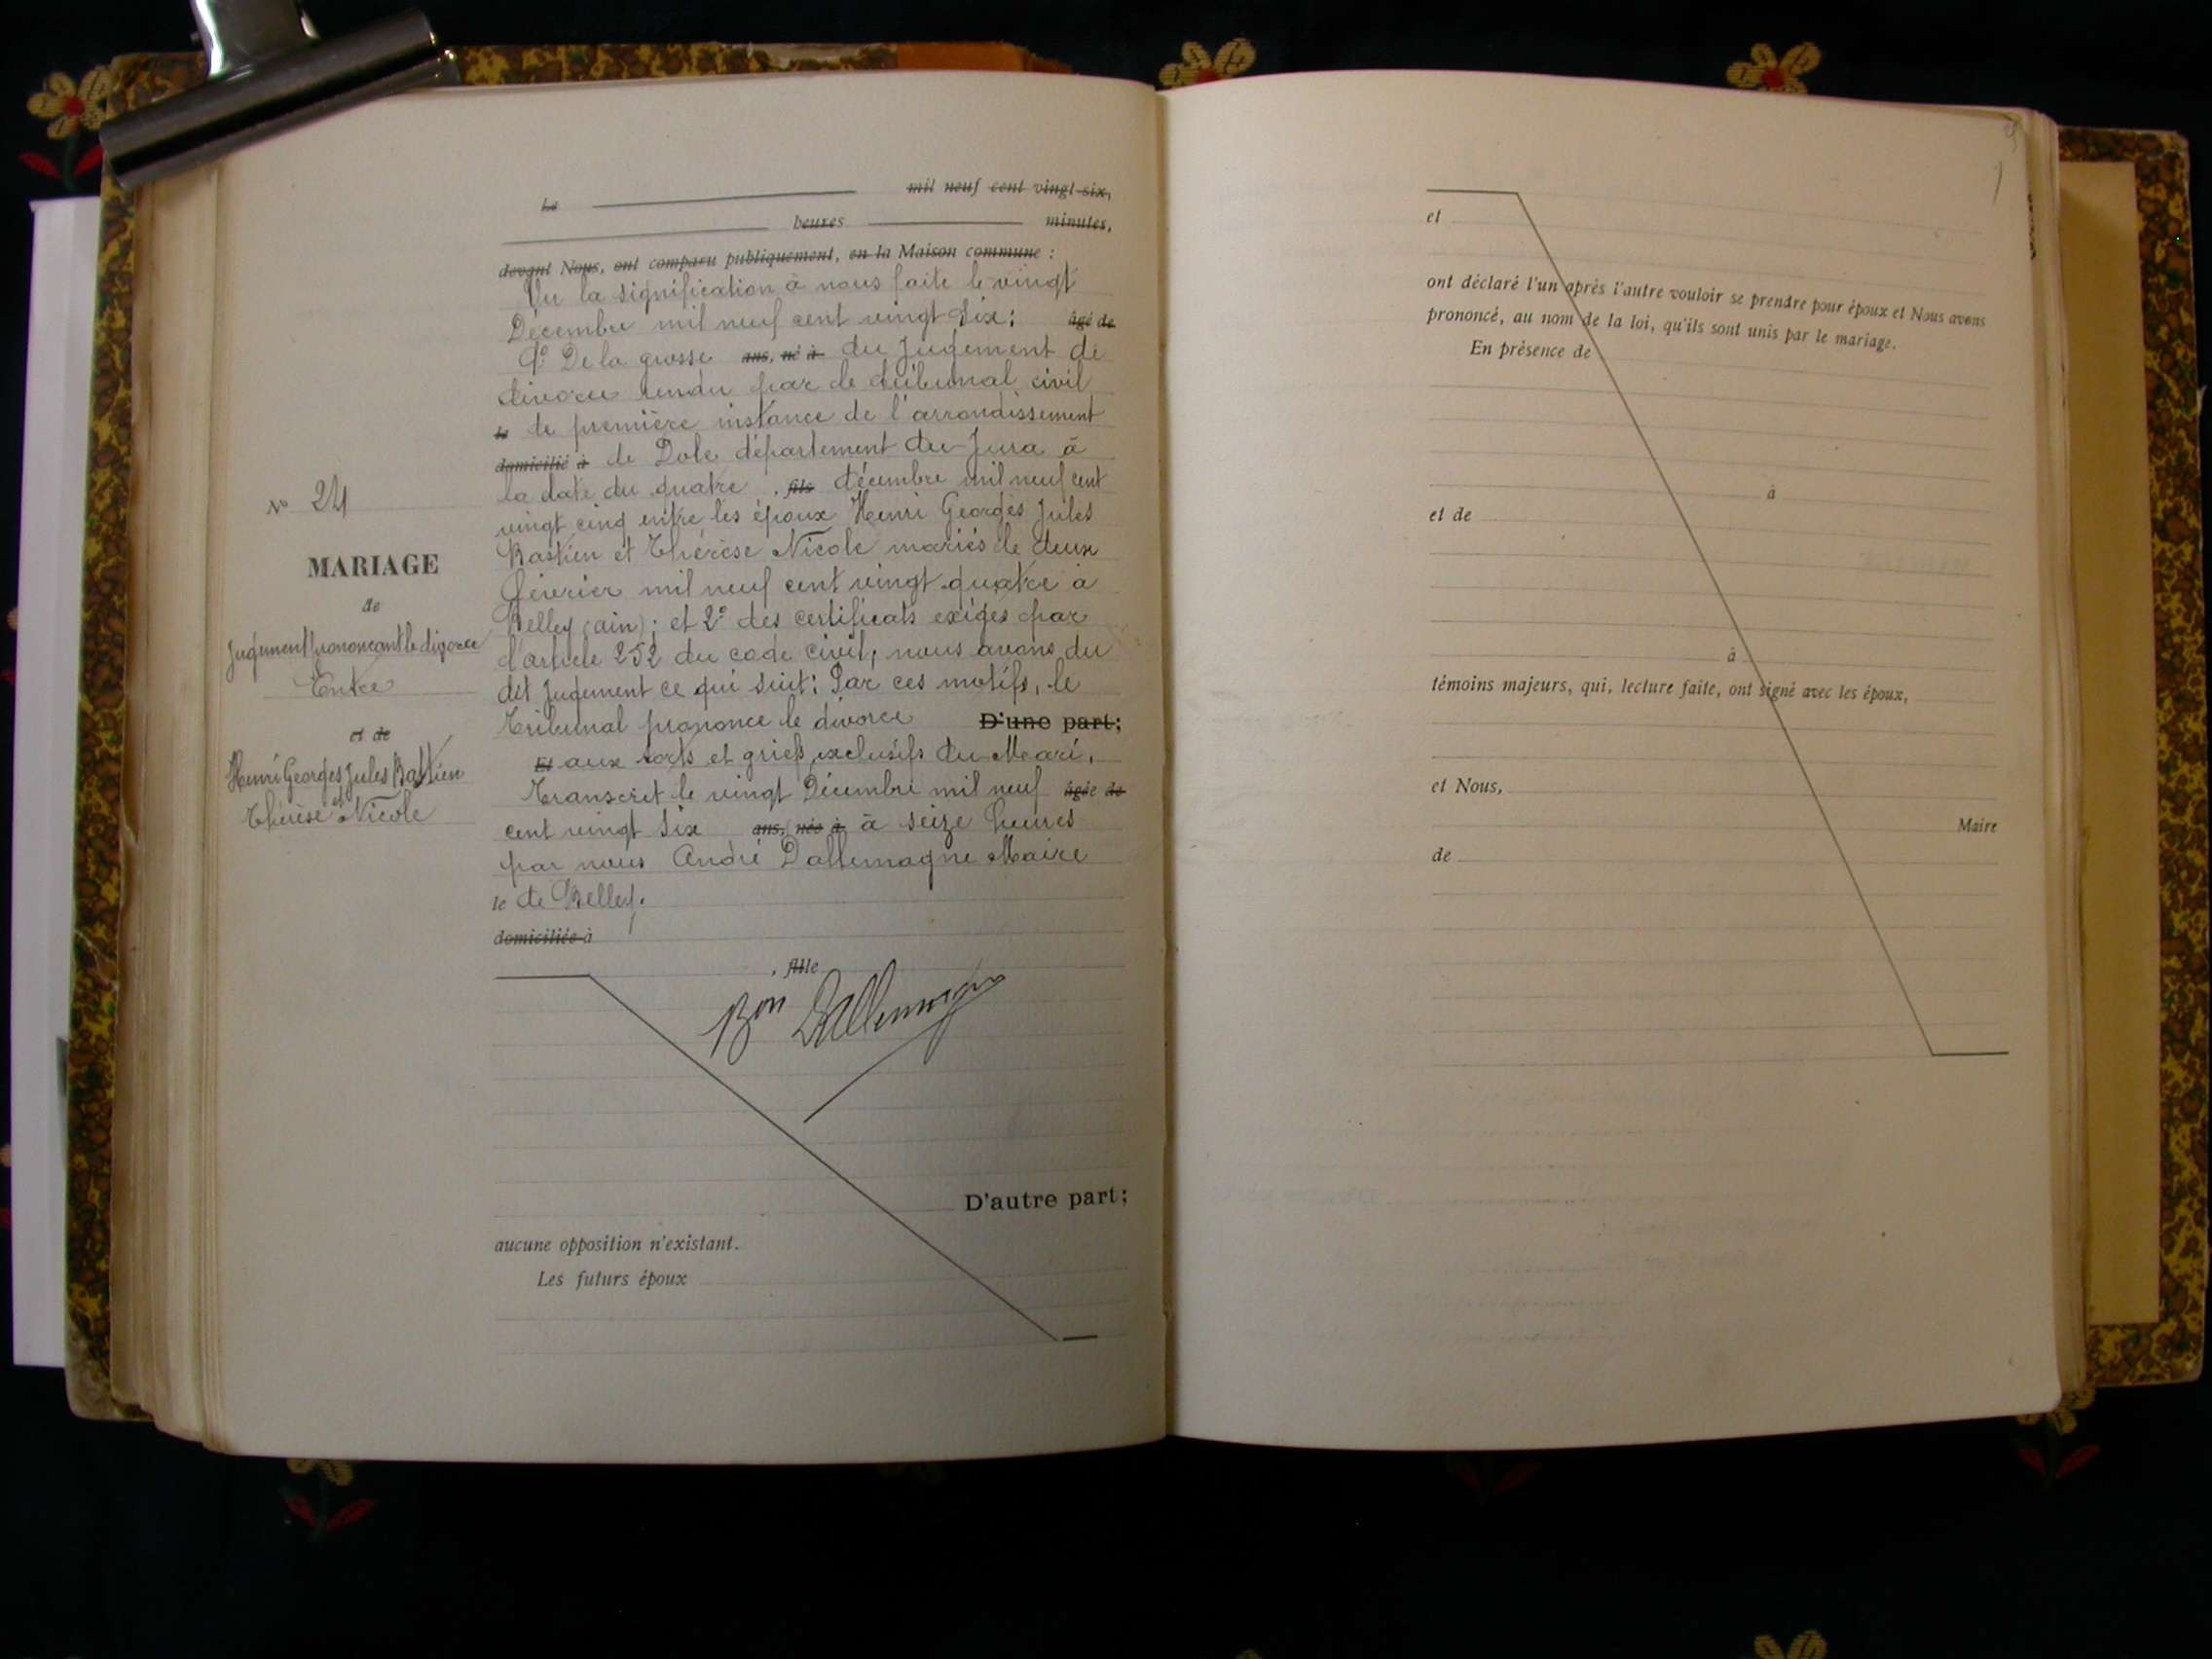 Le mil neuf cent vingt-six,
heures minutes,
devant Nous, ont comparu publiquement, en la Maison commune :
Vu la signification à nous faite le vingt
Décembre mil neuf cent vingt six; âgé de
1º De la grosse ans, né à du Jugement de
divorce rendu par le tribunal civil
le de première instance de l'arrondissement
domicilié à de Dole département du Jura à
la date du quatre , fils décembre mil neuf cent
vingt cinq entre les époux Henri Georges Jules
Bastien et Thérèse Nicole mariés le deux
février mil neuf cent vingt quatre à
Belley (ain); et 2º des certificats exigés par
l'article 252 du code civil, nous avons du
dit Jugement ce qui suit: Par ces motifs, le
Tribunal prononce le divorce D'une part;
Et aux torts et griefs exclusifs du Mari.
Transcrit le vingt Décembre mil neuf âgée de
cent vingt six ans, née à à seize heures
par nous André Dallemagne Maire
le de Belley.
domiciliée à
, fille
Bon Dallemagne
D'autre part;
aucune opposition n'existant.
Les futurs époux
Nº 24
MARIAGE
de
Jugement prononcant le divorce
Entre
et de
Henri Georges Jules Bastien
et
Thérèse Nicole
et
ont déclaré l'un après l'autre vouloir se prendre pour époux et Nous avons
prononcé, au nom de la loi, qu'ils sont unis par le mariage.
En présence de
à
et de
à
témoins majeurs, qui, lecture faite, ont signé avec les époux,
et Nous,
Maire
de